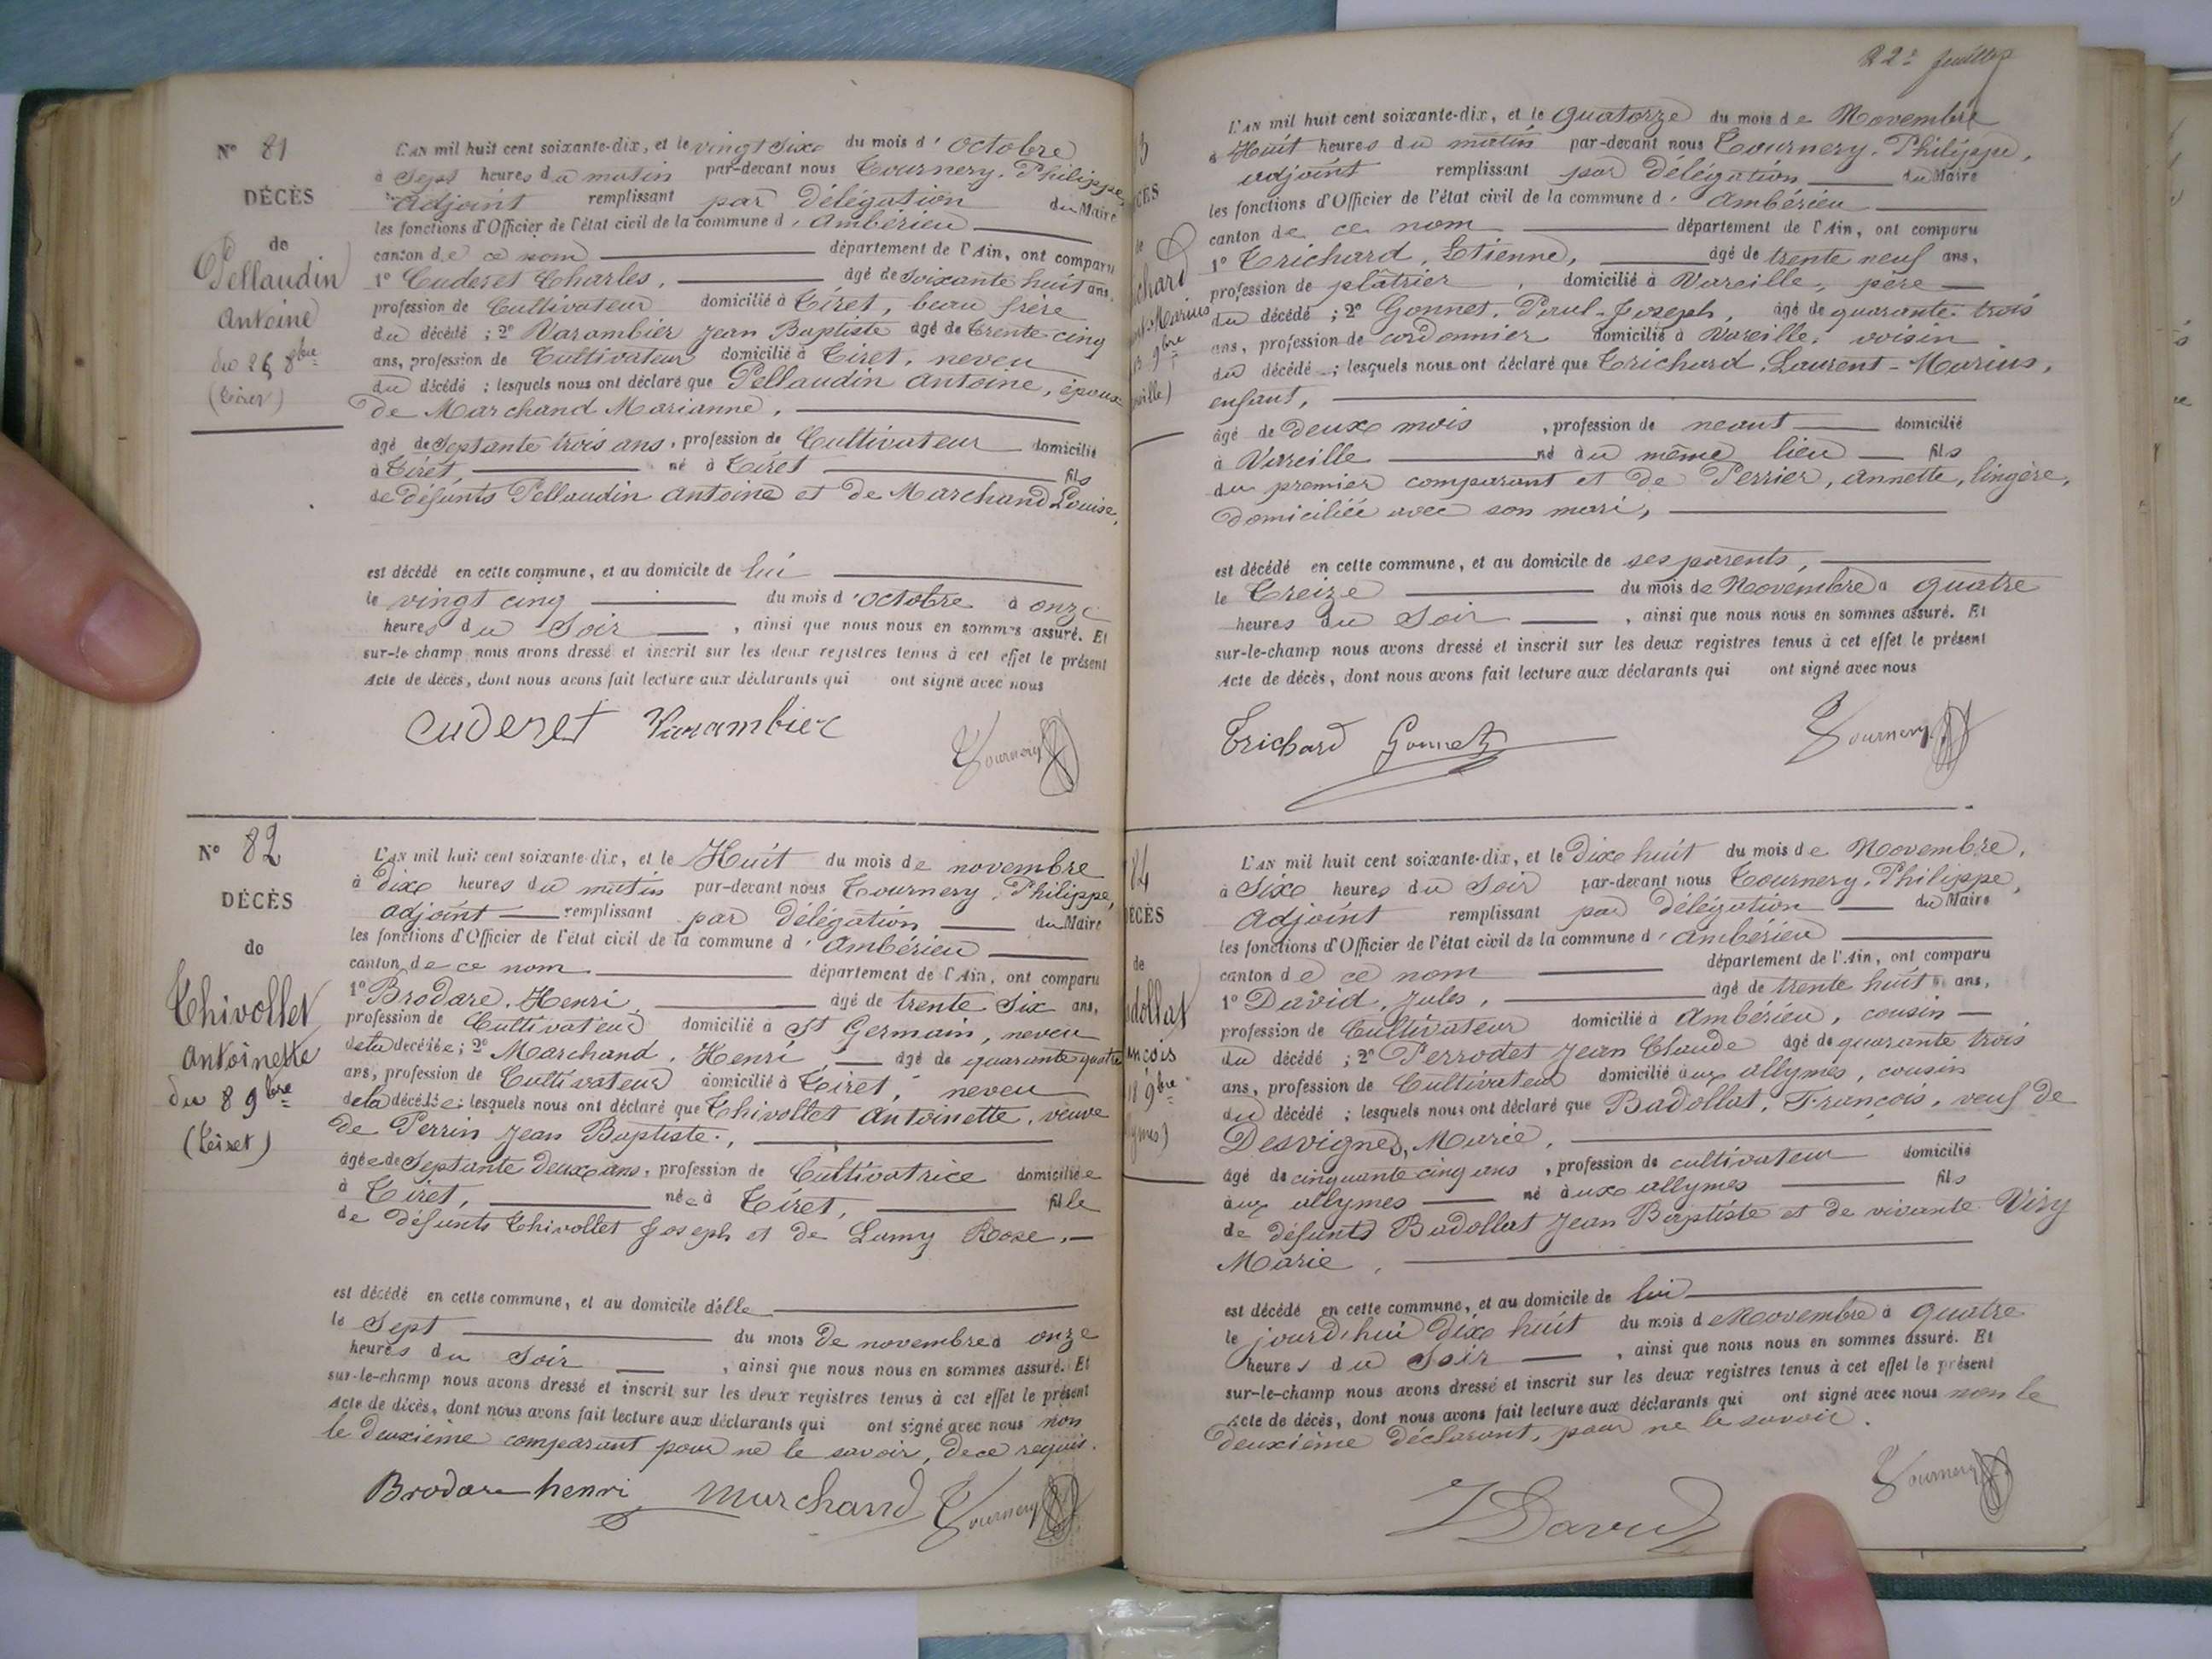 N° 81
DÉCÈS
de
Pellaudin
Antoine
du 26 8bre
(Tiret)
L'AN mil huit cent soixante-dix, et le vingt six du mois d'Octobre
à Sept heures du matin par-devant nous Tournery, Philippe,
Adjoint remplissant par Délégation du Maire
les fonctions d'Officier de l'état civil de la commune d'Ambérieu
canton de ce nom département de l'Ain, ont comparu
1° Cuderet Charles, âgé de soixante huit ans,
profession de Cultivateur domicilié à Tiret, beau frère
du décédé ; 2° Varambier Jean Baptiste âgé de Trente cinq
ans, profession de Cultivateur domicilié à Tiret, neveu
du décédé ; lesquels nous ont déclaré que Pellaudin Antoine, époux
de Marchand Marianne,
âgé de Septante trois ans, profession de Cultivateur domicilié
à Tiret, né à Tiret fils
de Défunts Pellaudin Antoine et de Marchand Louise,
est décédé en cette commune, et au domicile de lui
le vingt cinq du mois d'Octobre à onze
heures du Soir, ainsi que nous nous en sommes assuré. Et
sur-le-champ nous avons dressé et inscrit sur les deux registres tenus à cet effet le présent
Acte de décès, dont nous avons fait lecture aux déclarants qui ont signé avec nous
Cuderet Varambier Tournery
N° 82
DÉCÈS
de
Thivollet
Antoinette
du 8 9bre
(Tiret)
L'AN mil huit cent soixante-dix, et le Huit du mois de novembre
à Dix heures du matin par-devant nous Tournery, Philippe,
adjoint remplissant par Délégation du Maire
les fonctions d'Officier de l'état civil de la commune d'Ambérieu
canton de ce nom département de l'Ain, ont comparu
1° Brodare, Henri, âgé de trente Six ans,
profession de Cultivateur domicilié à St Germain, neveu
de la décédée ; 2° Marchand, Henri âgé de quarante quatre
ans, profession de Cultivateur domicilié à Tiret, neveu
de la décédée ; lesquels nous ont déclaré que Thivollet Antoinette, veuve
de Perrin Jean Baptiste.,
âgée de Septante Deux ans, profession de Cultivatrice domiciliée
à Tiret, née à Tiret, fille
de défunts Thivollet Joseph et de Lamy Rose,
est décédé en cette commune, et au domicile d'elle
le Sept du mois de novembre à onze
heures du Soir, ainsi que nous nous en sommes assuré. Et
sur-le-champ nous avons dressé et inscrit sur les deux registres tenus à cet effet le présent
Acte de décès, dont nous avons fait lecture aux déclarants qui ont signé avec nous non
le Deuxième comparant pour ne le savoir, de ce requis.
Brodare henri Marchand Tournery
22e feuillet
3
CÈS
de
ichard
ent-Marius
13 9bre
reille)
L'AN mil huit cent soixante-dix, et le Quatorze du mois de Novembre
à Huit heures du matin par-devant nous Tournery, Philippe,
adjoint remplissant par Délégation du Maire
les fonctions d'Officier de l'état civil de la commune d'Ambérieu
canton de ce nom département de l'Ain, ont comparu
1° Trichard, Etienne, âgé de trente neuf ans,
profession de plâtrier, domicilié à Vareille, père
du décédé ; 2° Gonnet, Paul-Joseph, âgé de quarante trois
ans, profession de cordonnier domicilié à Vareille, voisin
du décédé ; lesquels nous ont déclaré que Trichard, Laurent-Marius,
enfant,
âgé de Deux mois, profession de néant domicilié
à Vareille né au même lieu fils
du premier comparant et de Perrier, Annette, lingère,
Domiciliée avec son mari,
est décédé en cette commune, et au domicile de ses parents,
le Treize du mois de Novembre à Quatre
heures du Soir, ainsi que nous nous en sommes assuré. Et
sur-le-champ nous avons dressé et inscrit sur les deux registres tenus à cet effet le présent
Acte de décès, dont nous avons fait lecture aux déclarants qui ont signé avec nous
Trichard Gonnet Tournery
84
ÉCÈS
de
adollat
ançois
18 9bre
ymes)
L'AN mil huit cent soixante-dix, et le Dix huit du mois de Novembre,
à Six heures du Soir par-devant nous Tournery, Philippe,
Adjoint remplissant par Délégation du Maire
les fonctions d'Officier de l'état civil de la commune d'Ambérieu
canton de ce nom département de l'Ain, ont comparu
1° David, Jules, âgé de trente huit ans,
profession de Cultivateur domicilié à Ambérieu, cousin
du décédé ; 2° Perrodet Jean Claude âgé de quarante trois
ans, profession de Cultivateur domicilié aux allymes, cousin
du décédé ; lesquels nous ont déclaré que Badollat, François, veuf de
Desvignes, Marie,
âgé de cinquante cinq ans, profession de cultivateur domicilié
aux allymes né aux allymes fils
de défunts Badollat Jean Baptiste et de vivante Viry
Marie,
est décédé en cette commune, et au domicile de lui
le jourd'hui Dix huit du mois de Novembre à Quatre
heures du Soir, ainsi que nous nous en sommes assuré. Et
sur-le-champ nous avons dressé et inscrit sur les deux registres tenus à cet effet le présent
Acte de décès, dont nous avons fait lecture aux déclarants qui ont signé avec nous non le
Deuxième Déclarant, pour ne le savoir.
J David Tournery